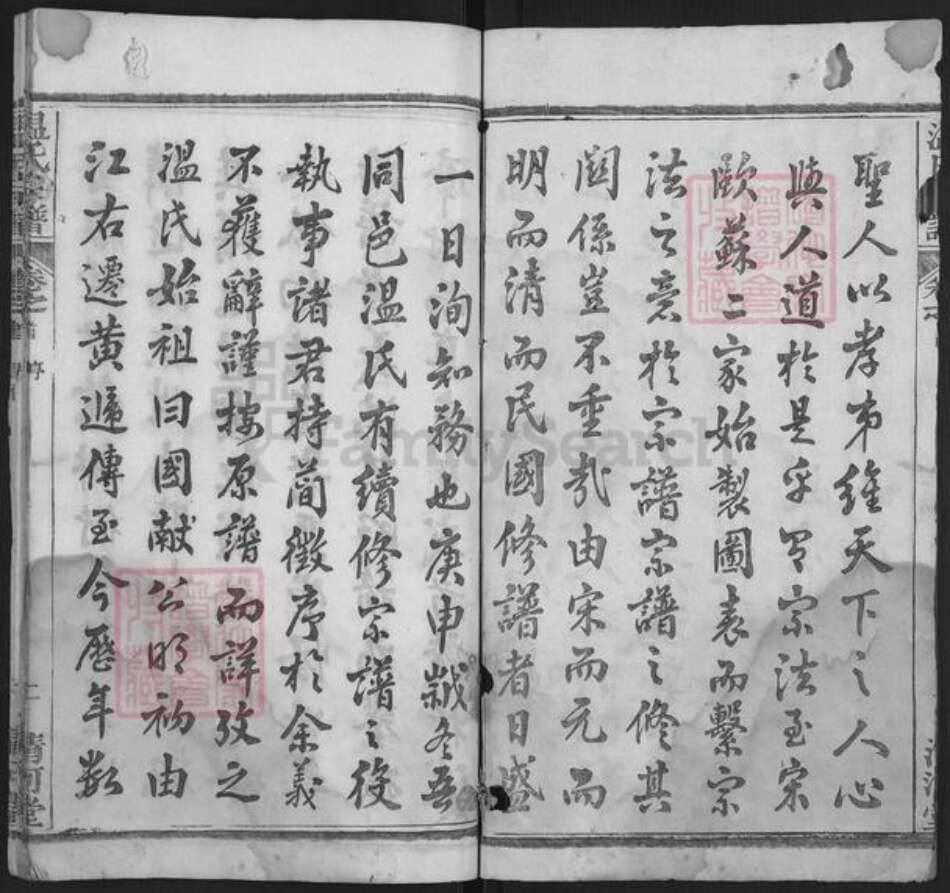 聖人以孝弟維天下之人心
與人道於是乎有宗法至宋
歐蘇二家始製圖表而繫宗
法之意於宗譜宗譜之修其
關係豈不重哉由宋而元而
明而清而民國修譜者日盛
一日洵知務也庚申歲冬吾
同邑溫氏有續修宗譜之役
執事諸君持簡徵序於余義
不獲辭謹按原譜而詳攷之
溫氏始祖曰國献公明初由
江右遷黄遞傳至今歷年数
溫氏宗譜
卷之
清河堂
FamilySearch